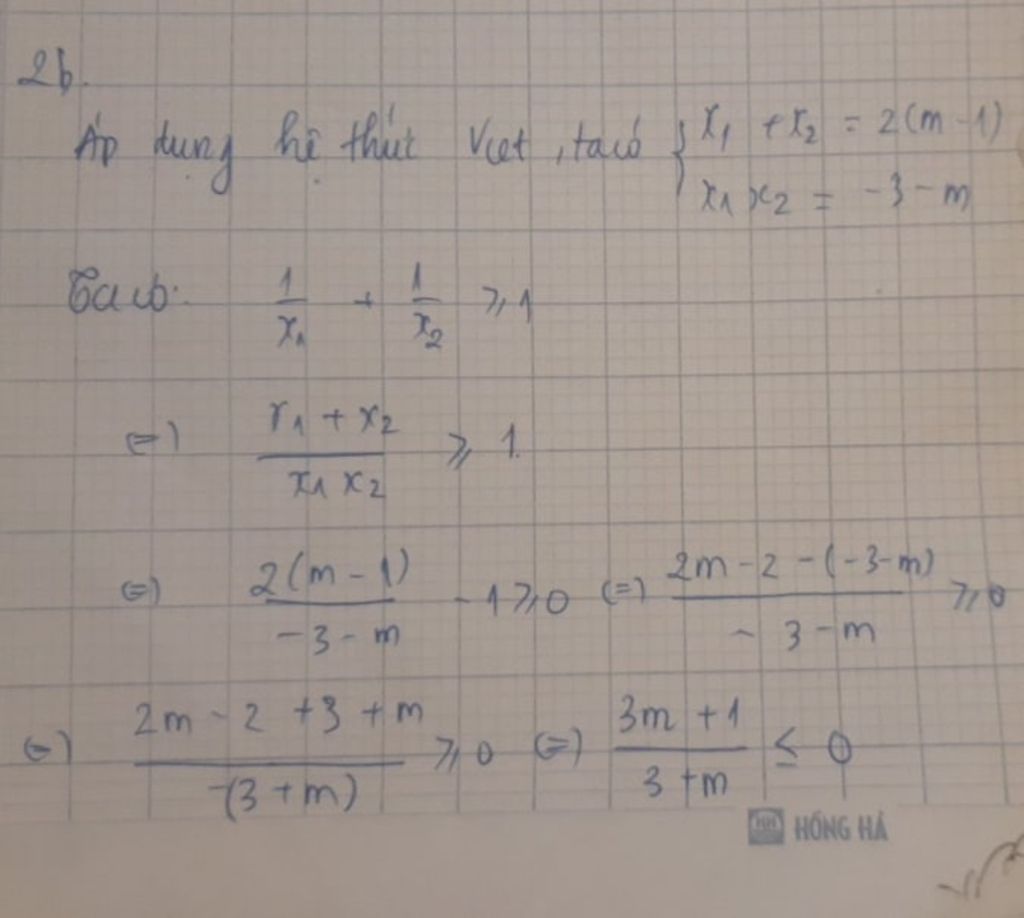 2b.
Áp dụng hệ thức Viet, ta có { x₁ + x₂ = 2(m - 1)
x₁ x₂ = -3 - m
Ta có: 1/x₁ + 1/x₂ ⩾ 1
(=) (x₁ + x₂)/(x₁ x₂) ⩾ 1.
(=) 2(m - 1)/(-3 - m) - 1 ⩾ 0 (=) (2m - 2 - (-3 - m))/(-3 - m) ⩾ 0
(=) (2m - 2 + 3 + m)/(-(3 + m)) ⩾ 0 (=) (3m + 1)/(3 + m) ≤ 0
HH HỒNG HÀ